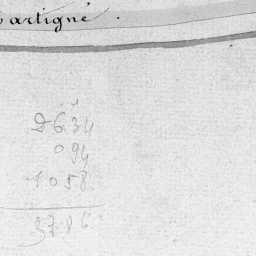 artigné.
2634
094
1058
3786